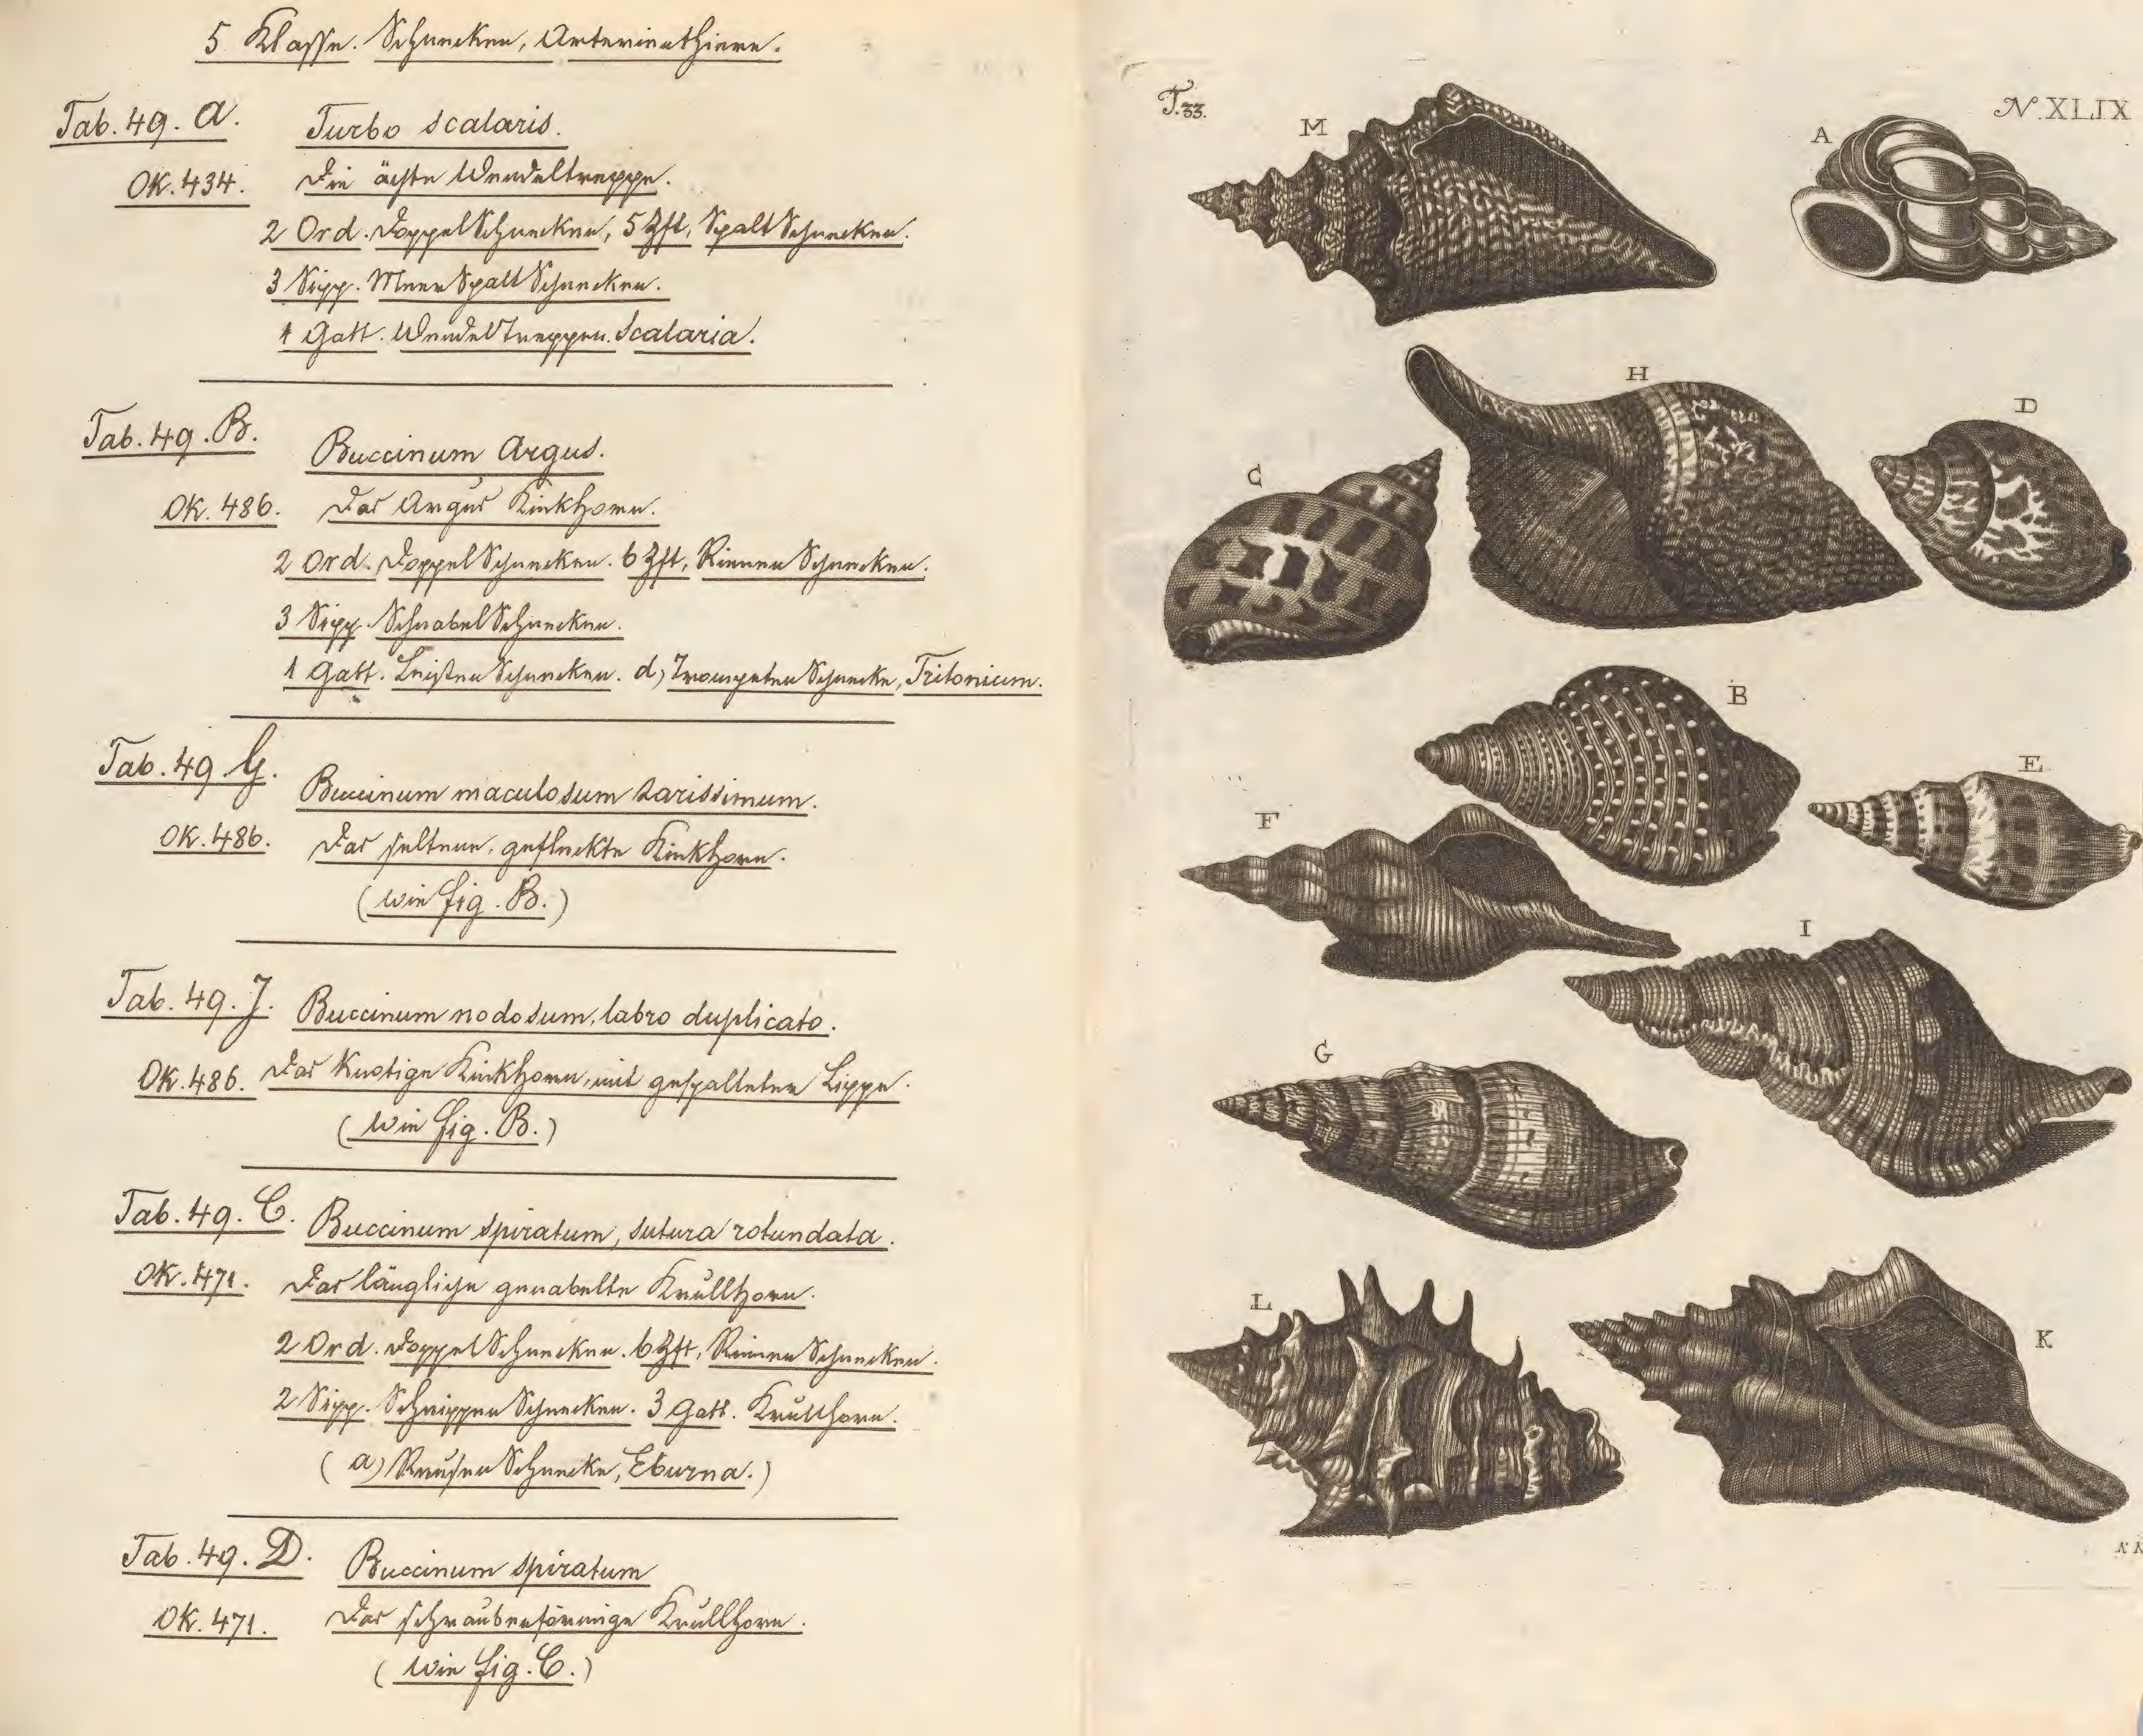 5 Klasse. Schnecken, Arterienthiere.
Tab. 49. a. Turbo scalaris.
OK. 434. Die ächte Wendeltreppe.
2 Ord. DoppelSchnecken, 5 Zft, SpaltSchnecken.
3 Sipp. MeerSpaltSchnecken.
1 Gatt. Wendeltreppen. Scalaria.
Tab. 49. B. Buccinum Argus.
OK. 486. Das Argus Kinkhorn.
2 Ord. DoppelSchnecken. 6 Zft, RinnenSchnecken.
3 Sipp. SchnabelSchnecken.
1 Gatt. LeistenSchnecken. d) TrompetenSchnecke, Tritonium.
Tab. 49 G. Buccinum maculosum rarissimum.
OK. 486. Das seltene, gefleckte Kinkhorn.
(wie fig. B.)
Tab. 49. J. Buccinum nodosum, labro duplicato.
OK. 486. Das knotige Kinkhorn, mit gespaltener Lippe.
(wie fig. B.)
Tab. 49. C. Buccinum spiratum, sutura rotundata.
OK. 471. Das längliche genabelte Krullhorn.
2 Ord. DoppelSchnecken. 6 Zft, RinnenSchnecken.
2 Sipp. SchnippenSchnecken. 3 Gatt. Krullhorn.
(a) ReusenSchnecke, Eburna.)
Tab. 49. D. Buccinum spiratum
OK. 471. Das schraubenförmige Krullhorn.
(wie fig. C.)
T. 33. N. XLIX
M
A
H
D
C
B
E
F
I
G
L
K